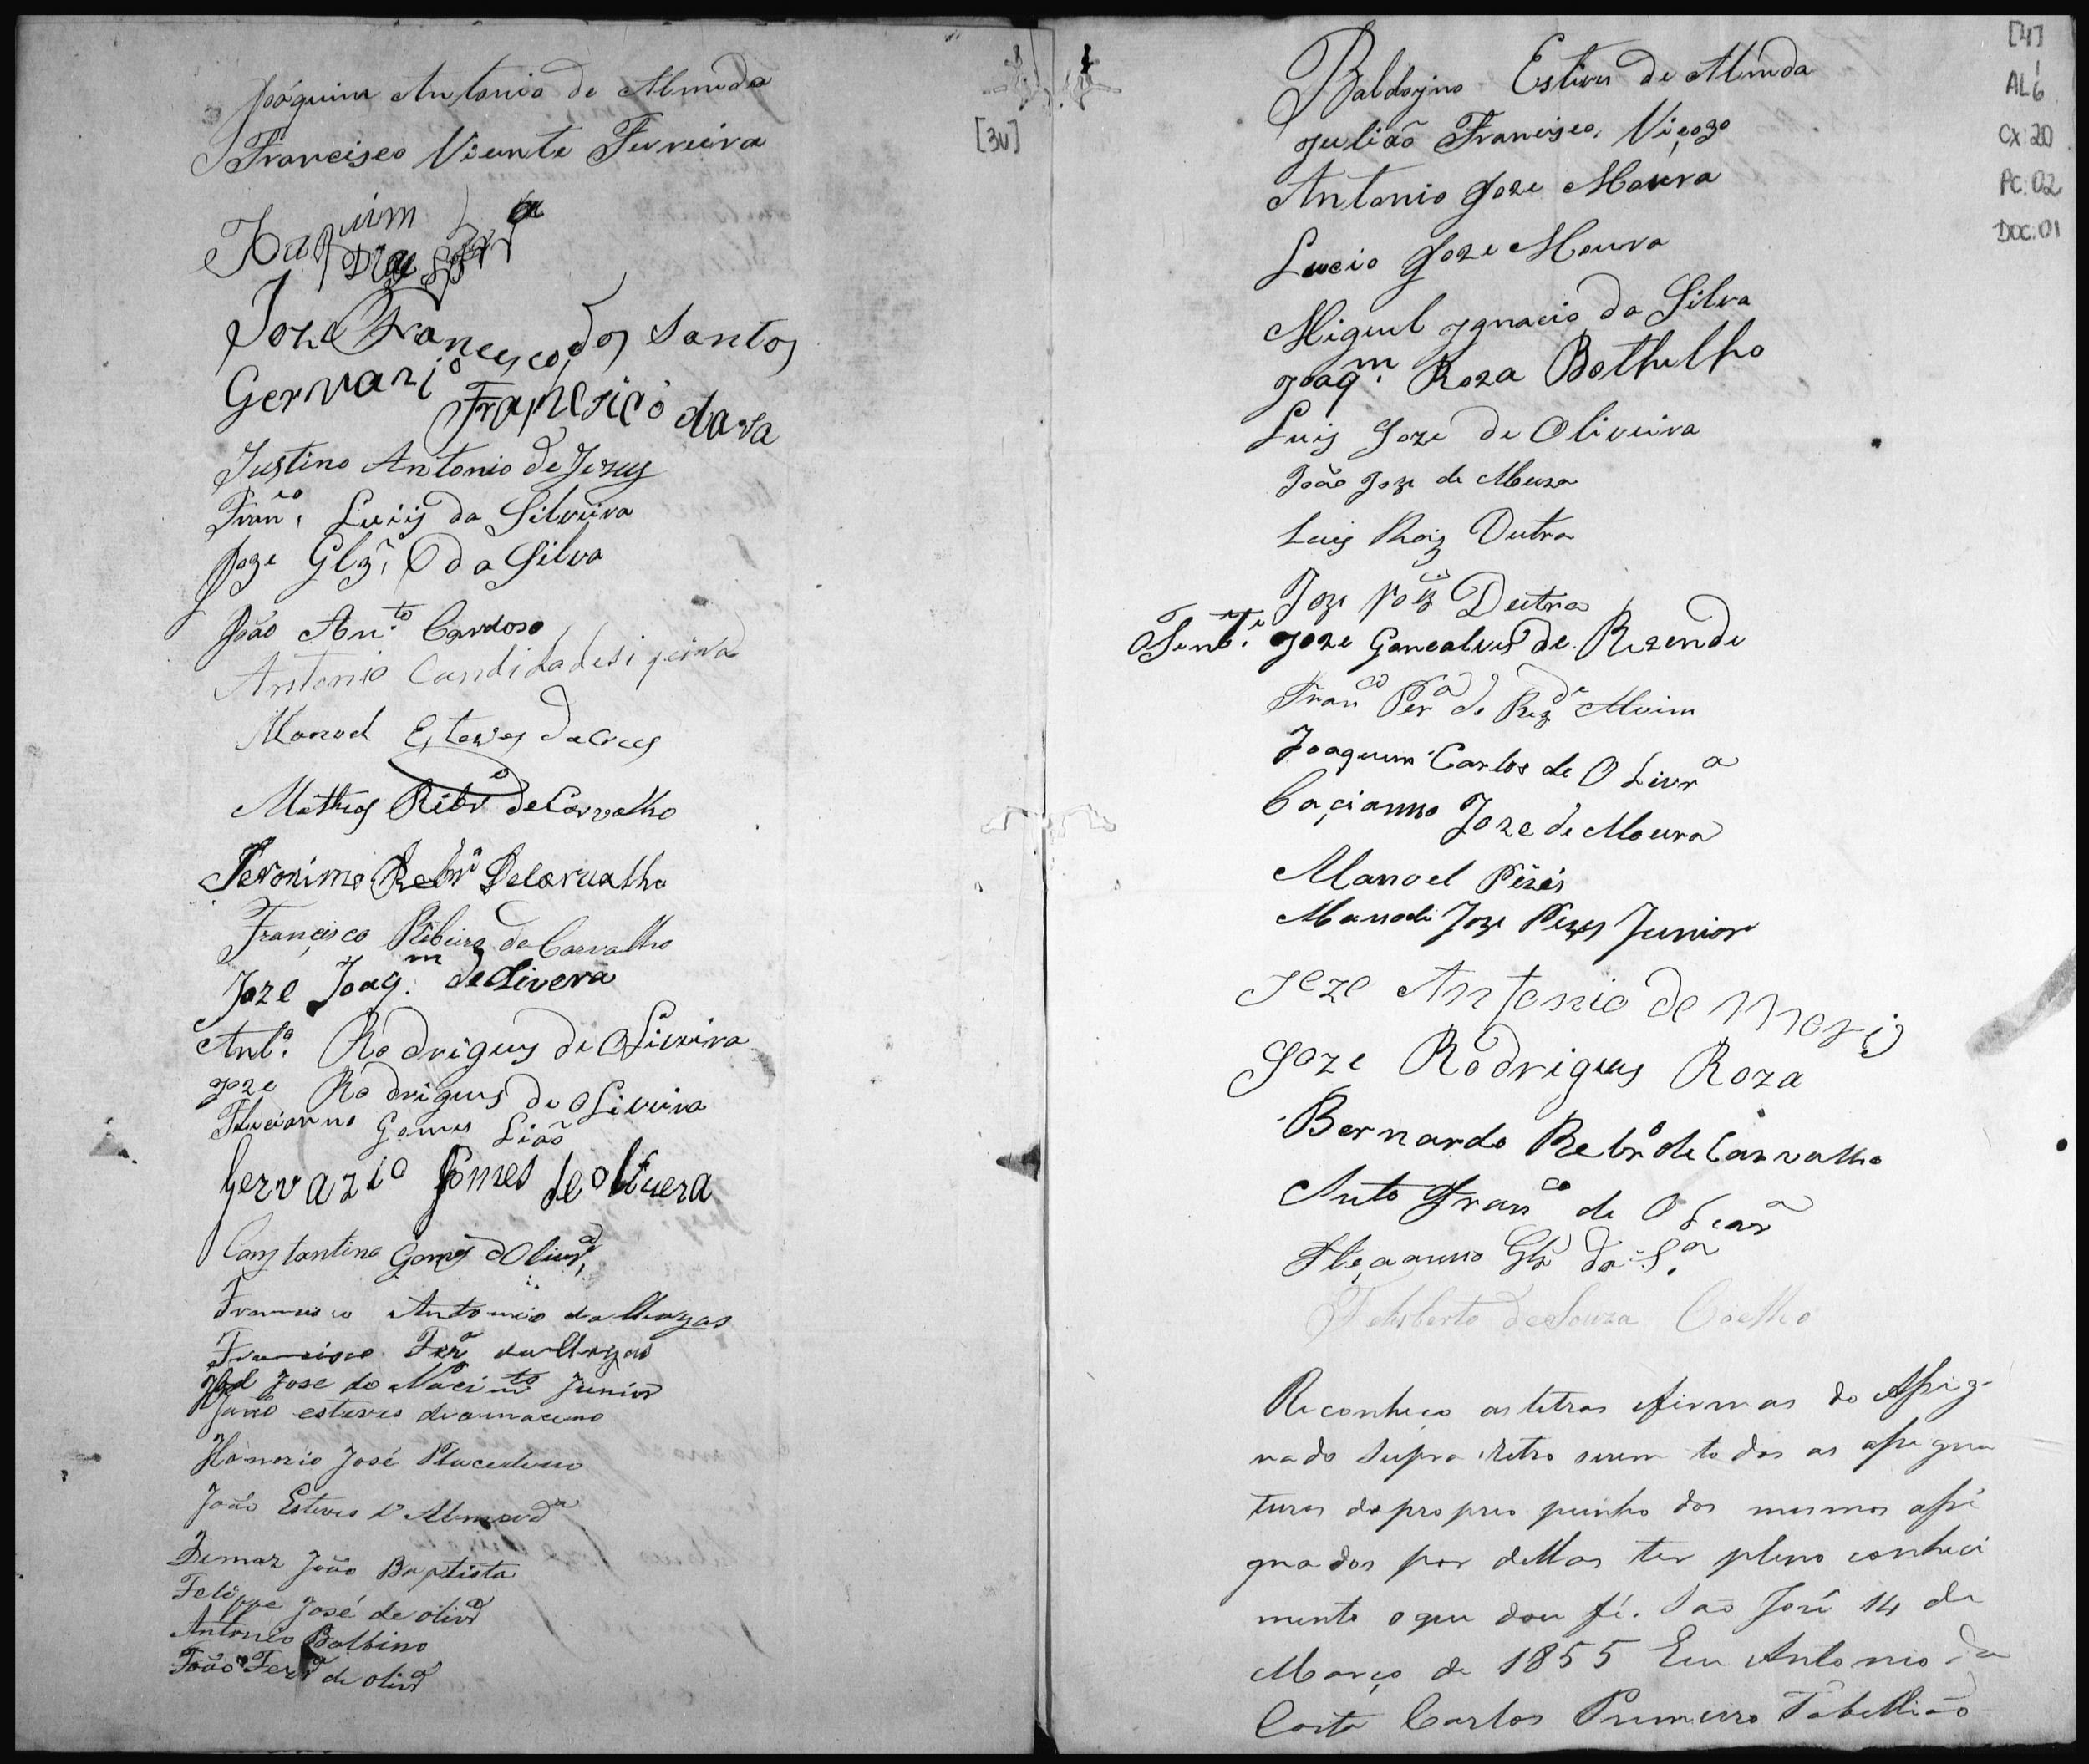 Joaquim Antonio de Almeida
Francisco Vicente Ferreira
[3v]
Joaquim
Joze Francisco dos Santos
Gervazio Francisico da
Justino Antonio de Jezus
Fran.co Luiis da Silveira
Joze Glz. da Silva
João An.to Cardoso
Antonio Candido
Manoel Esteves da Cruz
Matheos Ribr.o de Carvalho
Jeronimo Rebr.o Decarvalho
Francisco Ribeiro de Carvalho
Joze Joaq.m de Olivera
Ant.o Rodrigues de Oliveira
Joze Rodrigues de Oliveira
Felicianno Gomes Lião
Gervazio Gomes de olivera
Constantino Gomes d Olivr.a
Francisco Antonio das Chagas
Francisco Fer.a das Chagas
Jose do Nacim.to Junior
João esteves
Honorio José
João Esteves d' Almeid.a
João Baptista
Felippe José de oliv.a
Antonio Balbino
João Fer.a de oliv.a
[4]
AL6
CX: 20
PC: 02
DOC: 01
Baldoino Estives de Almeida
Julião Francisco Viçozo
Antonio Joze Moura
Lucio Joze Moura
Miguel Ignacio da Silva
Joaq.m Roza Bothelho
Luis Joze de Oliveira
João Joze de Moura
Luis Roiz Dutra
Joze Roiz Dutra
Joze Goncalves de Rezende
Fran.co Per.a de Rez.de Alvim
Joaquim Carlos de O Livr.a
Caçianno Joze de Moura
Manoel Péres
Manoel Joze Peres Junior
Jeze Antonio de Moris
Joze Rodrigues Roza
Bernardo Rebr.o de Carvalho
Anto Fran.co de
Glz da S.a
Felisberto de Souza Coelho
Reconheço as letras efirmas do Assig-
nado Supra eRetro serem todas as assigna
turas do proprio punho dos mesmos assi
gnados por dellas ter pleno conheci
mento oque dou fé. Sao José 14 de
Março de 1855 Eu Antonio da
Costa Carlos Primeiro Tabellião